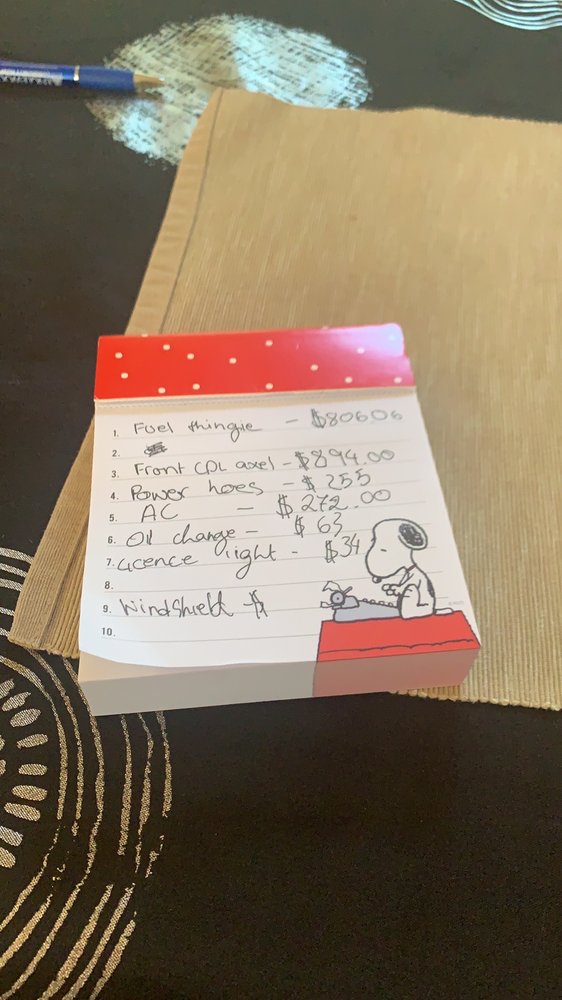 1. Fuel thingie - $80606
2.
3. Front CDL axel - $894.00
4. Power hoes - $255
5. AC - $272.00
6. Oil change - $63
7. Licence light - $34
8.
9. Windshield $
10.